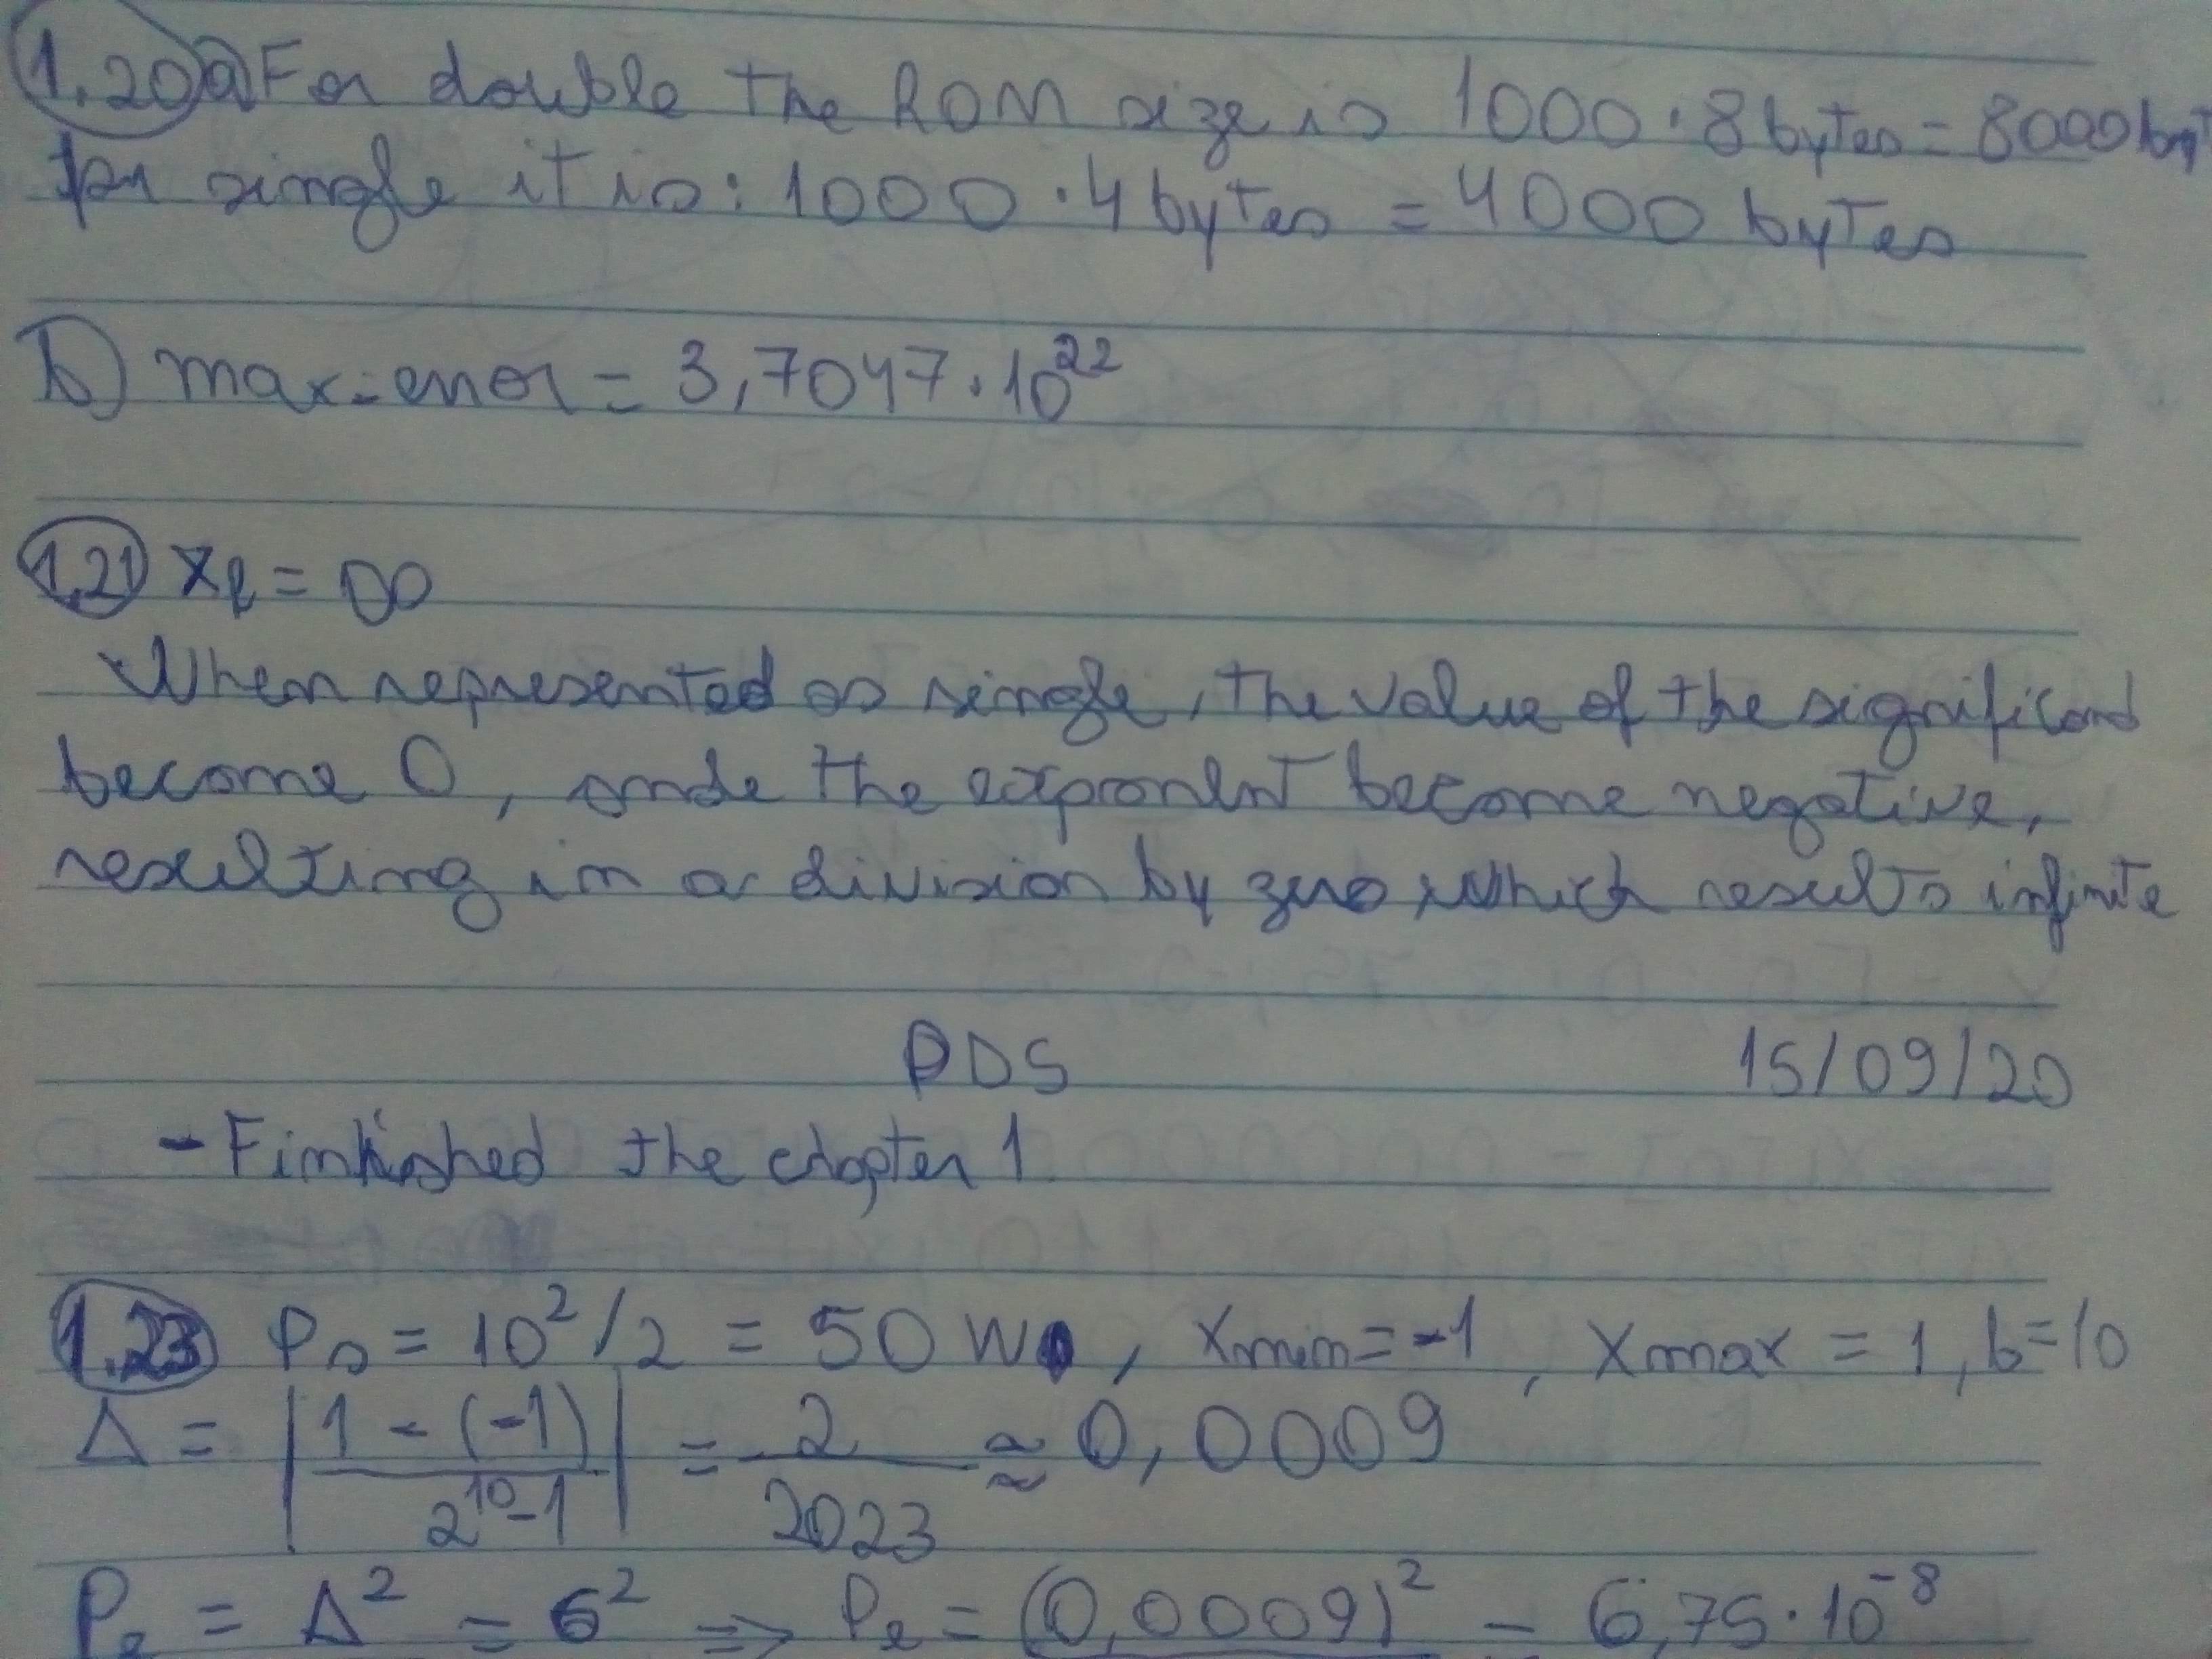 1.20 a) For double the ROM size is 1000 · 8 bytes = 8000 byt
for single it is: 1000 · 4 bytes = 4000 bytes
b) max-error = 3,7047 · 10²²
1.21 xq = ∞
When represented as single, the value of the significand
become 0, and the exponent become negative,
resulting in a division by zero, which results infinite
PDS 15/09/20
- Finhished the chapter 1
1.23 Ps = 10² / 2 = 50 W, Xmin = -1, Xmax = 1, b = 10
Δ = |1 - (-1) / 2¹⁰ - 1| = 2 / 2023 ≈ 0,0009
Pe = Δ² = σ² => Pe = (0,0009)² = 6,75 · 10⁻⁸